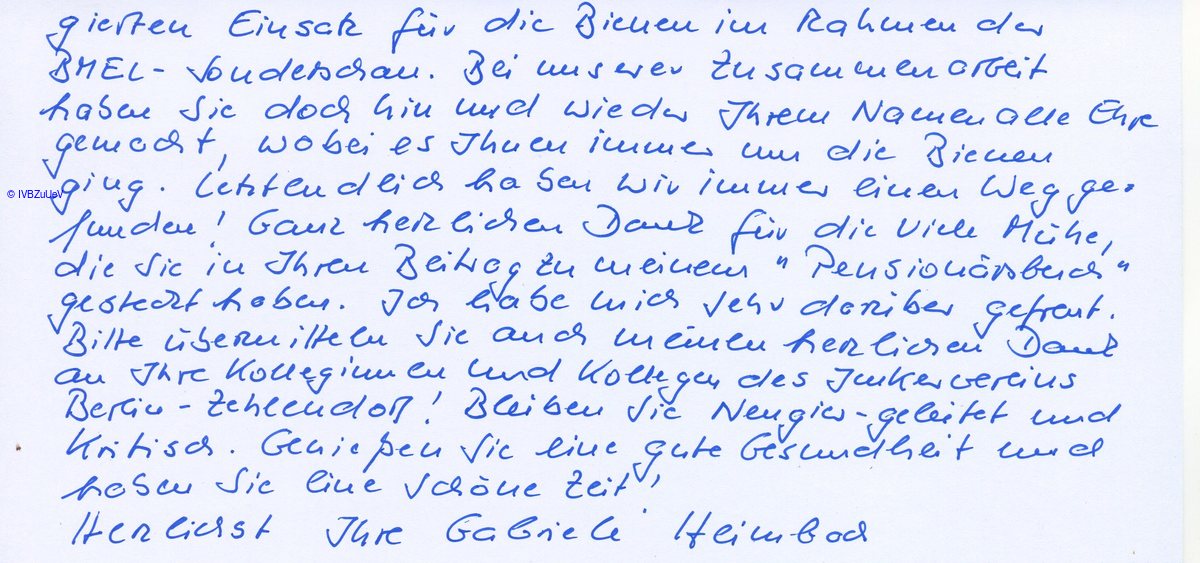 gierten Einsatz für die Bienen im Rahmen der
BMEL-Sonderschau. Bei unserer Zusammenarbeit
haben Sie doch hin und wieder Ihrem Namen alle Ehre
gemacht, wobei es Ihnen immer um die Bienen
© IVBZuUeV
ging. Letztendlich haben wir immer einen Weg ge-
funden! Ganz herzlichen Dank für die viele Mühe,
die Sie in Ihren Beitrag zu meinem "Pensionärsbuch"
gesteckt haben. Ich habe mich sehr darüber gefreut.
Bitte übermitteln Sie auch meinen herzlichen Dank
an Ihre Kolleginnen und Kollegen des Imkervereins
Berlin-Zehlendorf! Bleiben Sie Neugier-geleitet und
Kritisch. Genießen Sie eine gute Gesundheit und
haben Sie eine schöne Zeit!
Herzlichst Ihre Gabriele Heimbach